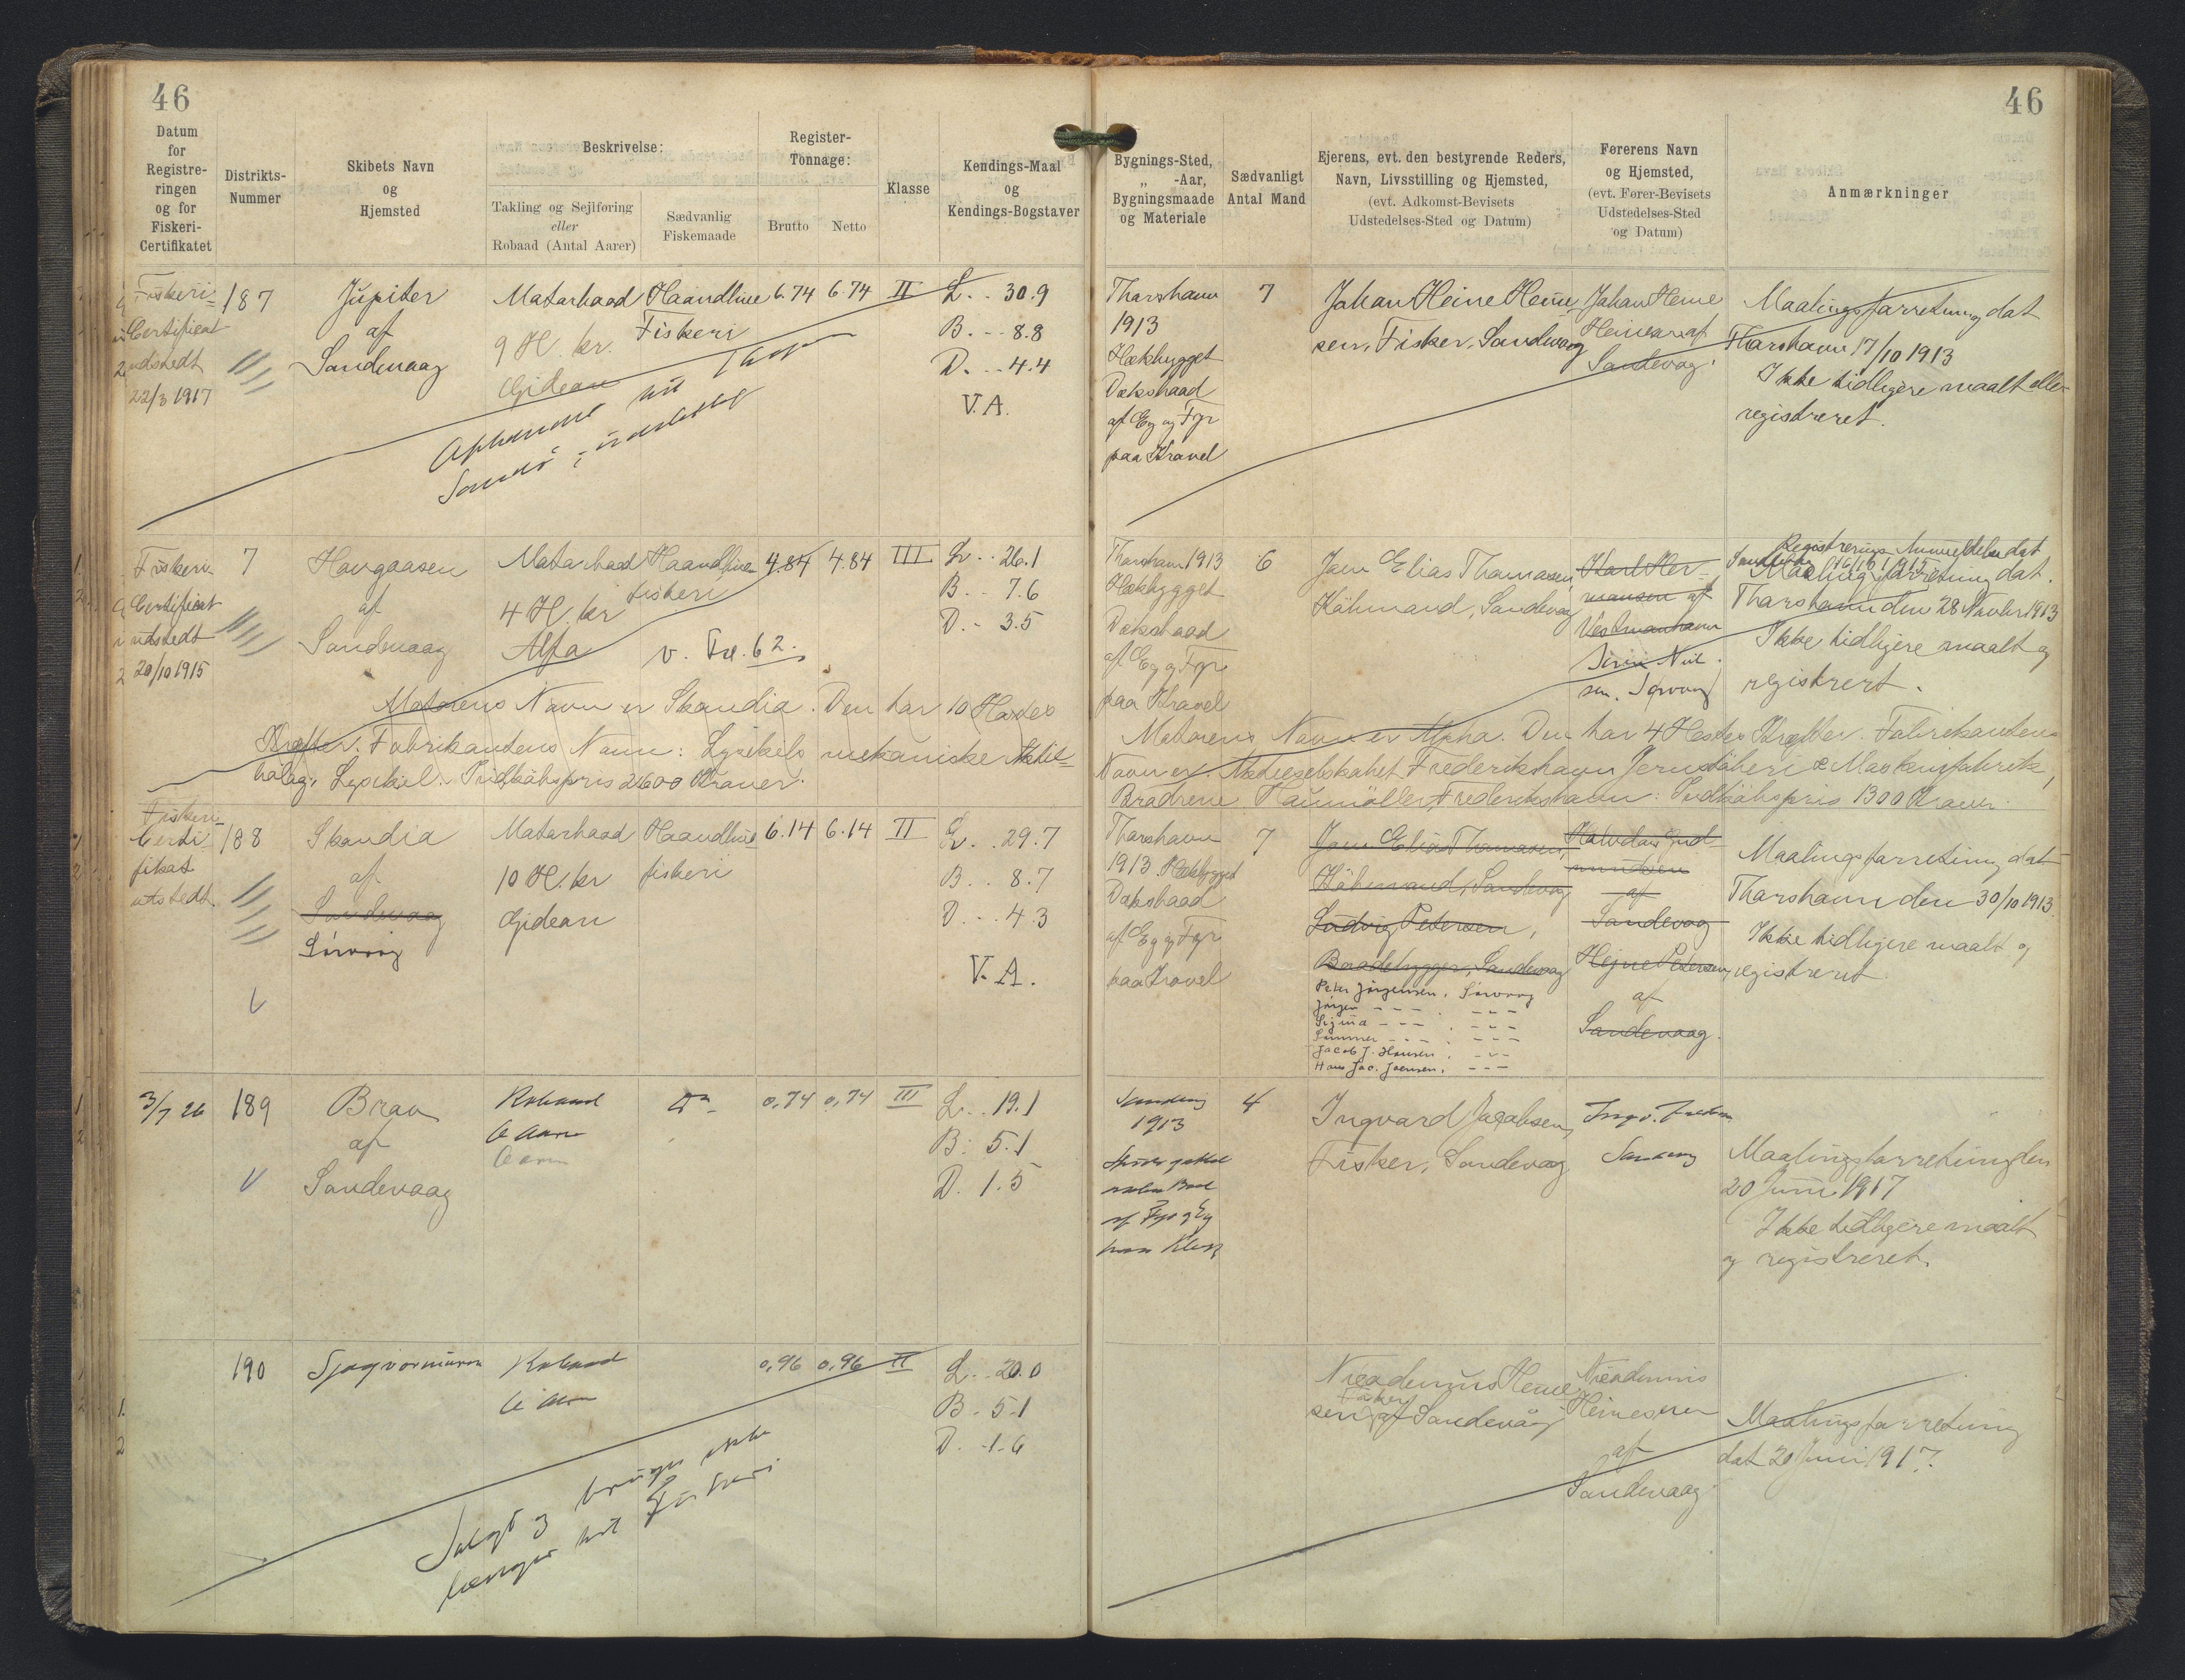 46
Datum
for
Registre-
ringen
og for
Fiskeri-
Certifikatet
Distrikts-
Nummer
Skibets Navn
og
Hjemsted
Beskrivelse:
Takling og Sejlføring
eller
Robaad (Antal Aarer)
Sædvanlig
Fiskemaade
Register-
Tonnage:
Brutto
Netto
Klasse
Kendings-Maal
og
Kendings-Bogstaver
Fiskeri=
Certificat
udstedt
22/3 1917
187
Jupiter
af
Sandevaag
Motorbaad
9 H. kr.
Gideon
Haandline
Fiskeri
6.74
6 74
II
L. . 30.9
B. - - 8.8
D. . - 4.4
V.A.
Aphændet til
Sandø
Fiskeri
Certificat
udstedt
20/10 1915
7
Havgaasen
af
Sandevaag
Motorbaad
4 H. kr
Alfa
Haandline
fiskeri
v. Fol. 62.
4.84
4.84
III
L. . 26.1
B. - 7.6
D. - 3.5
Motorens Navn er Skandia. Den har 10 Hestes
Kræfter. Fabrikantens Navn: Lysekils mekaniske Aktie=
bolag, Lysekil. Indkøbspris 2600 Kroner.
Fiskeri
Certi
fikat
utstedt
188
Skandia
af
Sandevaag
Sörvaag
Motorbaad
10 H. kr
Gidean
Haandline
fiskeri
6.14
6.14
II
L. . 29.7
B. . 8.7
D. - . 4.3
V.A.
3/7 26
189
Brav
af
Sandevaag
Robaad
6 Aarer
0,74
0,74
III
L. . 19.1
B. 5.1
D. 1.5
190
Robaad
6 Aarer
0,96
0,96
II
L. . 20.0
B. - 5.1
D. - 1.6
Solgt og bruges ikke
længer til Fiskeri
46
Bygnings-Sted,
„ -Aar,
Bygningsmaade
og Materiale
Sædvanligt
Antal Mand
Ejerens, evt. den bestyrende Reders,
Navn, Livsstilling og Hjemsted,
(evt. Adkomst-Bevisets
Udstedelses-Sted og Datum)
Førerens Navn
og Hjemsted,
(evt. Fører-Bevisets
Udstedelses-Sted
og Datum)
Anmærkninger
Thorshavn
1913
Hækbygget
Dæksbaad
af Eg og Fyr
paa Kravel
7
Johan Heine Heine
sen, Fisker, Sandevaag
Johan Heine
Heinesen af
Sandevag.
Maalingsforretning dat
Thorshavn 17/10 1913
Ikke tidligere maalt eller
registreret.
Thorshavn 1913
Hækbygget
Dæksbaad
af Eg og Fyr
paa Kravel
6
Jam Elias Thomasen,
Købmand, Sandevag
Karl Her-
mansen af
Vestmanhavn
sen. Sørvaag
Registrerings Anmeldelse dat
Maalingsforretning dat.
Thorshavn den 28 Novbr 1913
Ikke tidligere maalt og
registrert.
Motorens Navn er Alpha. Den har 4 Hestes Kræfter. Fabrikantens
Navn er: Aktieselskabet Frederikshavn Jernstøberi & Maskinfabrik,
Brødrene Houmøller, Frederikshavn. Indkøbspris 1300 Kroner.
Thorshavn
1913. Hækbygget
Dæksbaad
af Eg og Fyr
paa Kravel
7
Jam Elias Thomasen,
Købmand, Sandevag
Ludvig Petersen,
Baadebygger, Sandevaag
Peter Jörgensen, Sörvaag
Jörgen - - - . - - -
Sigma - - - . - - -
Simmer - - - . - - -
Jacob J. Hansen. - - -
Hans Jac. Joensen. - - -
Halvdan Gud-
mundsen
af
Sandevag
Hejne Petersen,
af
Sandevaag.
Maalingsforretning dat
Thorshavn den 30/10 1913.
Ikke tidligere maalt og
registreret.
Sandevaag
1913
af Fyr og Eg
paa Klink
4
Ingvard Jacobsen,
Fisker, Sandevag
Maalingsforretning den
20 Juni 1917
Ikke tidligere maalt
og registreret.
Nicodemus Heine
Fisker
sen, af Sandevåg
Nicodemus
Heinesen
af
Sandevaag.
Maalingsforretning
dat 20 Juni 1917.